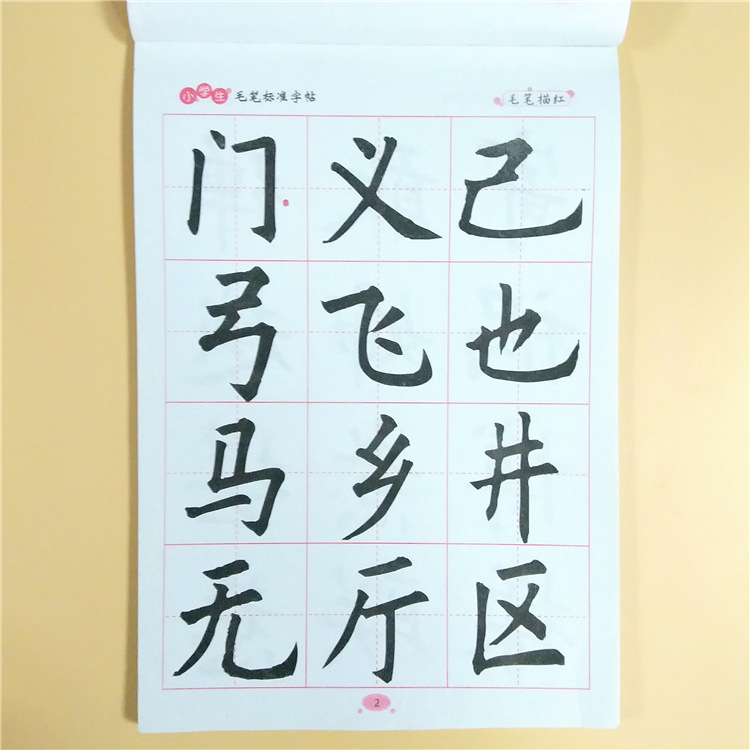 小学生 毛笔标准字帖 毛笔描红
门义己
弓飞也
马乡井
无斤区
2